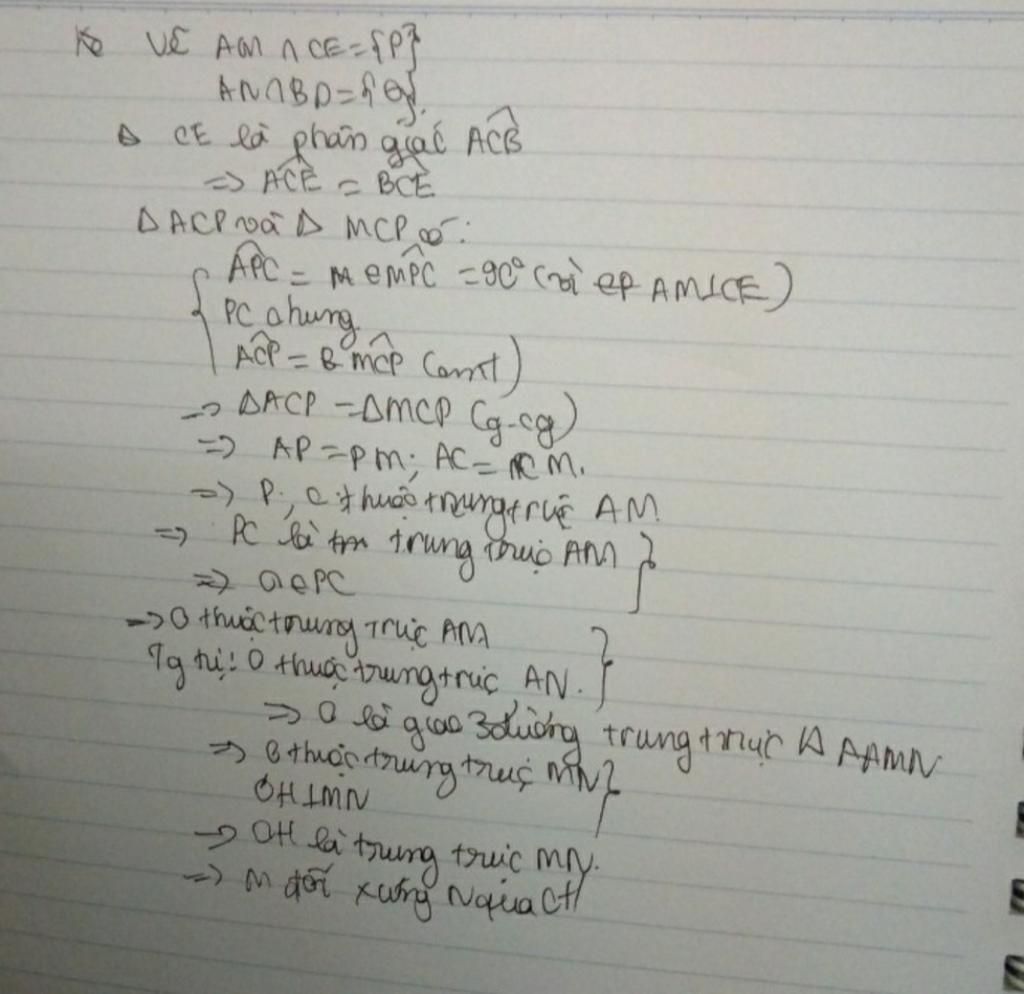 Kẻ Vẽ AM ∩ CE = {P}
AN ∩ BD = {Q}.
CE là phân giác ACB^
=> ACE^ = BCE^
Δ ACP và Δ MCP có:
APC^ = MPC^ = 90° (vì AM⊥CE)
PC chung
ACP^ = MCP^ (cmt)
=> ΔACP = ΔMCP (g-cg)
=> AP = PM; AC = CM.
=> P; C thuộc trung trực AM
=> PC là trung trực AM
=> O ∈ PC
=> O thuộc trung trực AM
Tg tự: O thuộc trung trực AN.
=> O là giao 3 đường trung trực Δ AMN
=> O thuộc trung trực MN
OH ⊥ MN
=> OH là trung trực MN.
=> M đối xứng N qua OH